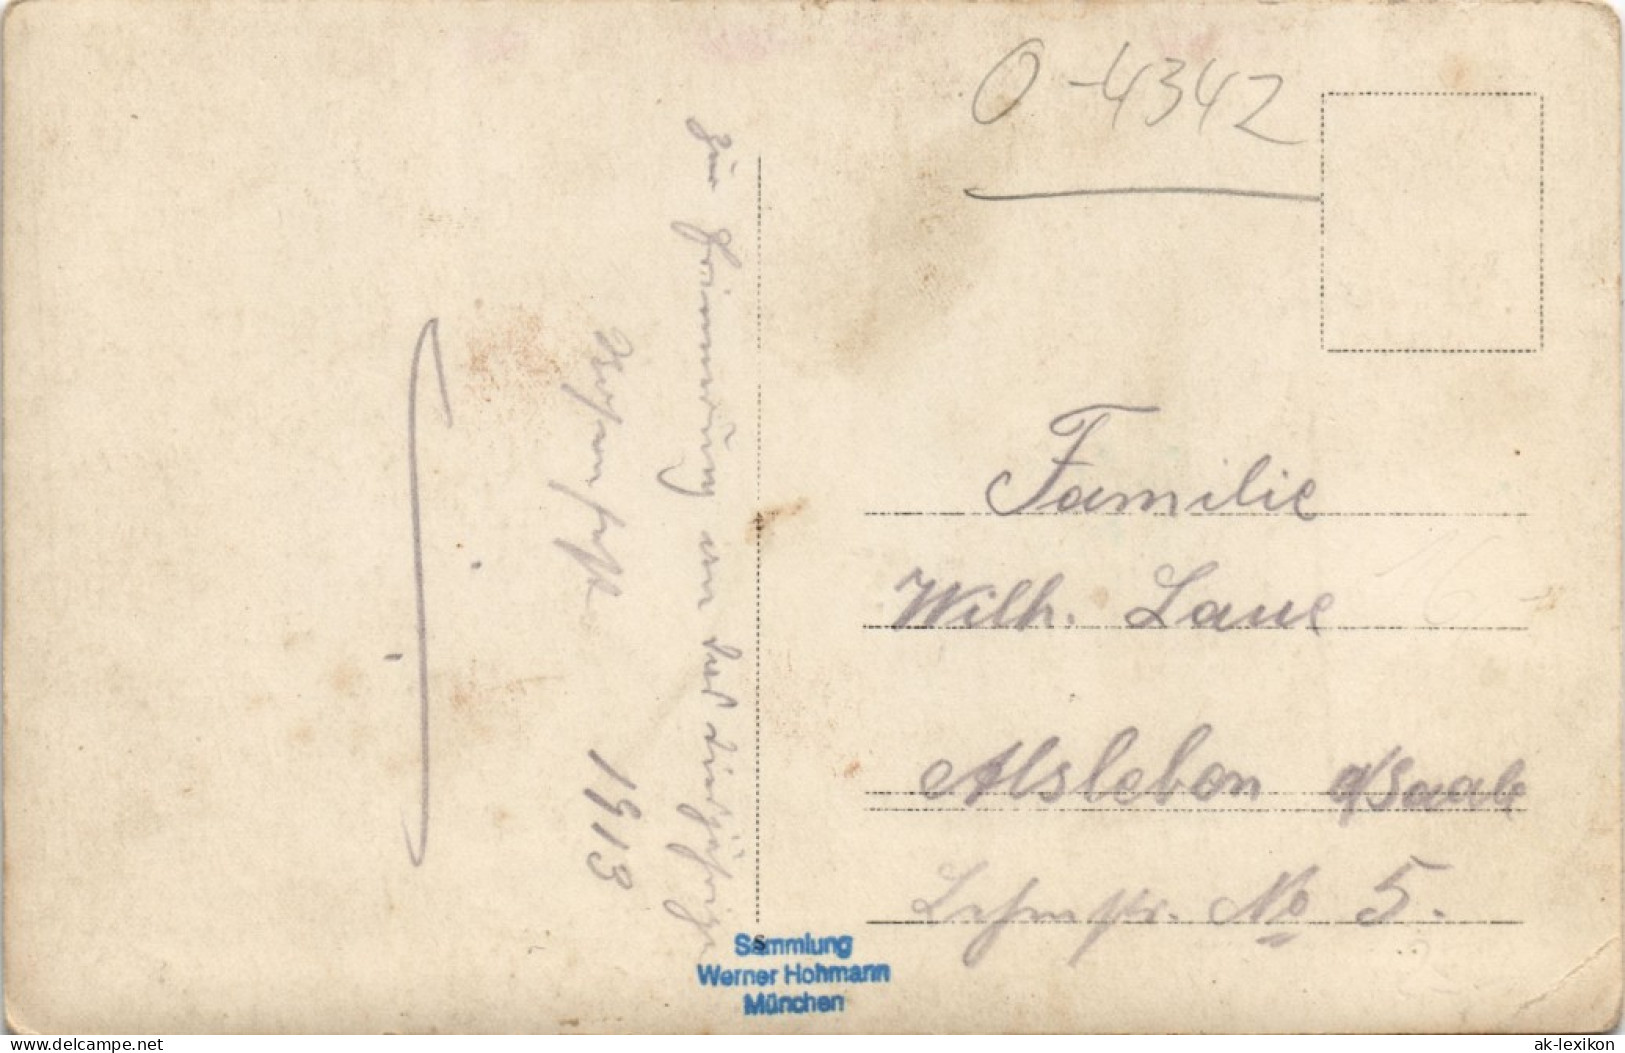 O-4342
zur Erinnerung an das diesjährige
1913
Familie
Wilh. Laue
Alsleben a/Saale
Lehmstr. No 5.
Sammlung
Werner Hohmann
München
delcampe.net
ak-lexikon